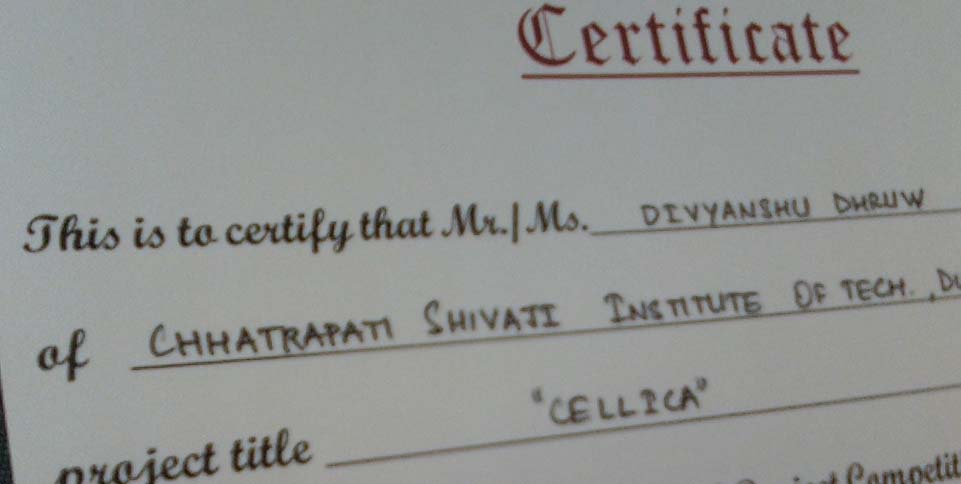 Certificate
This is to certify that Mr./Ms. DIVYANSHU DHRUW
of CHHATRAPATI SHIVAJI INSTITUTE OF TECH. ,
project title "CELLICA"